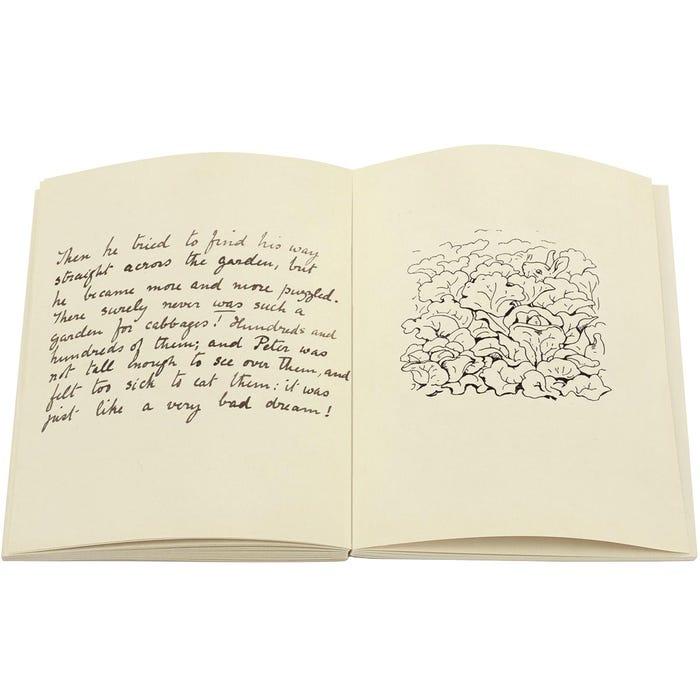 Then he tried to find his way
straight across the garden, but
he became more and more puzzled.
There surely never was such a
garden for cabbages! Hundreds and
hundreds of them; and Peter was
not tall enough to see over them, and
felt too sick to eat them: it was
just like a very bad dream!